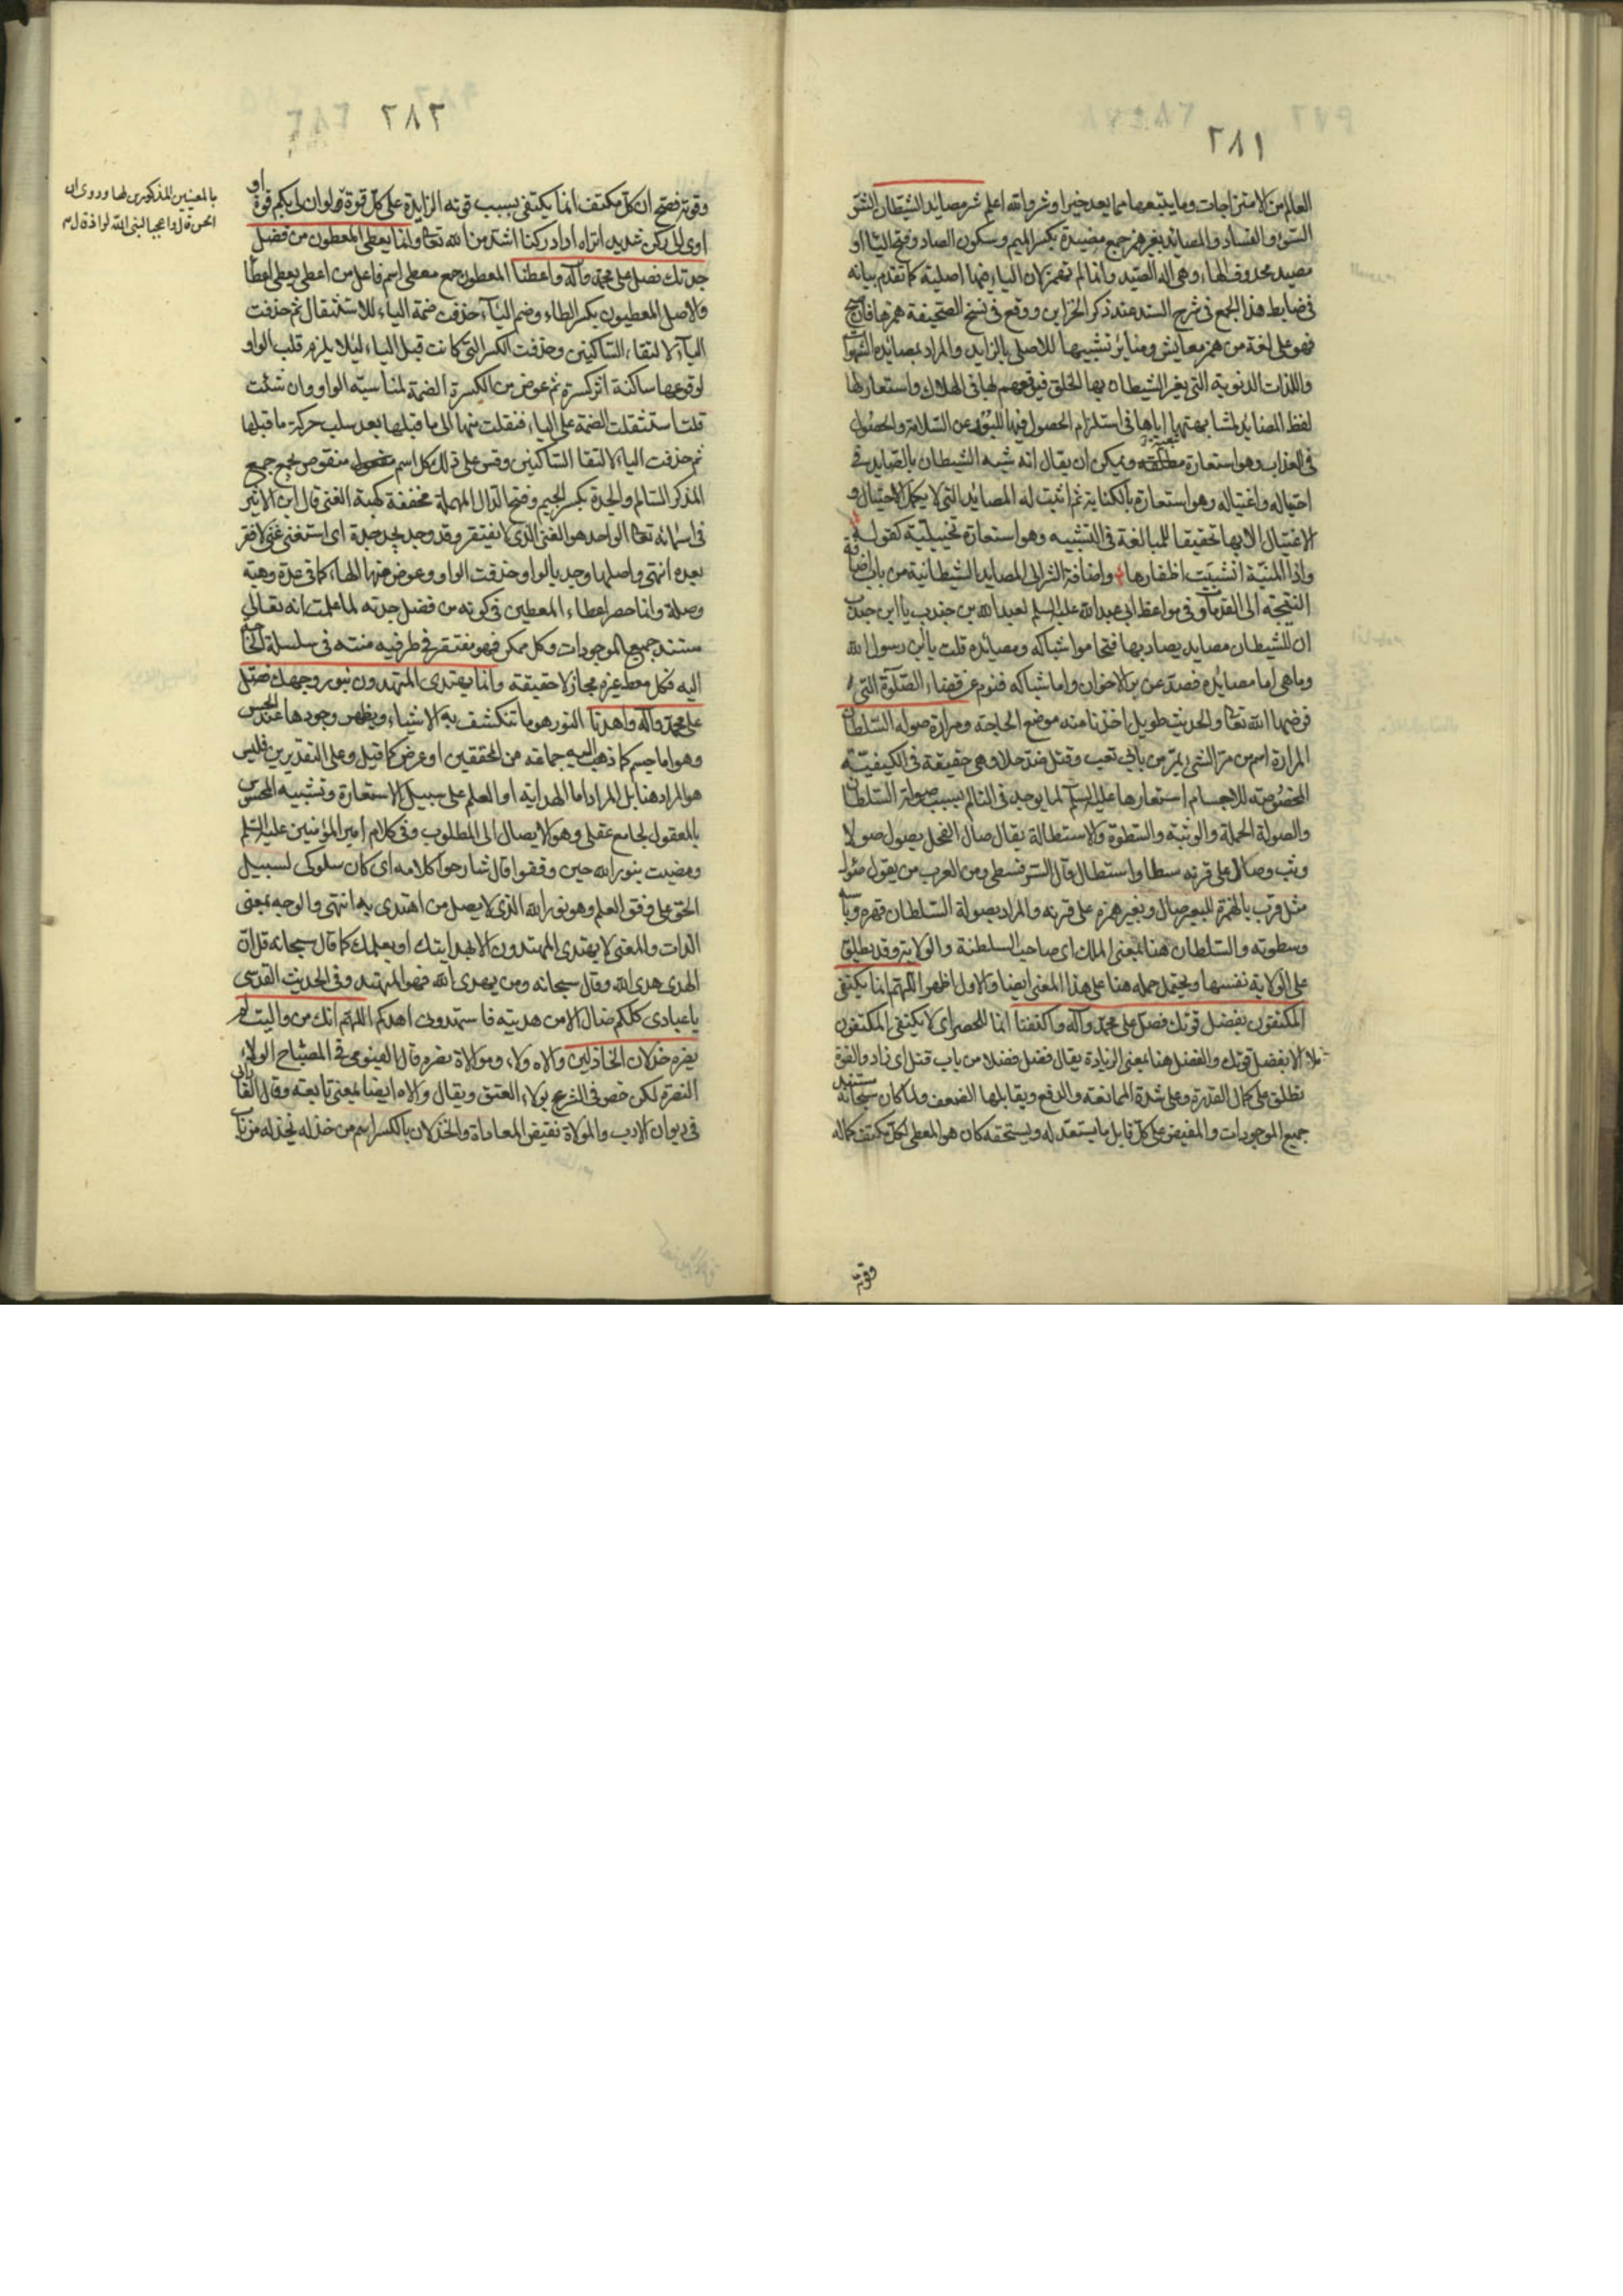 ٢٨١
العالم من الامتزاجات وما يتبعها مما يعد خيرا وشرا والله اعلم شر مصايد الشيطان الشر
السوء والفساد والمصائد بغير همز جمع مصيدة بكسر الميم وسكون الصاد وفتح الياء او
مصيد بحذف الهاء وهى اله الصيد وانما لم تهمز لان الياء فيها اصلية كما تقدم بيانه
فى ضابط هذا الجمع فى شرح السند عند ذكر الخزاين ووقع فى نسخ الصحيفة همزها فان صح
فهو على لغة من همز معايش ومنائر تشبيها للاصلى بالزايد والمراد بمصائده الشهوات
واللذات الدنيوية التى يغر الشيطان بها الخلق فيوقعهم بها فى الهلاك واستعار لها
لفظ المصائد لمشابهتها اياها فى استلزام الحصول فيها للبعد عن السلامة والحصول
فى العذاب وهو استعارة ويمكن ان يقال انه شبه الشيطان بالصايد فى
احتياله واغتياله وهو استعارة بالكناية ثم اثبت له المصائد التى لا يكمل الاحتيال و
الاغتيال الا بها تحقيقا للمبالغة فى التشبيه وهو استعارة تخييلية كقوله
واذا المنية انشبت اظفارها واضافة الشر الى المصايد الشيطانية من باب اضافة
النتيجة الى المقدمات وفى مواعظ ابى عبد الله عليه السلم لعبد الله بن جندب يا ابن جندب
ان للشيطان مصايد يصاد بها فتحاموا شباكه ومصائده قلت يا ابن رسول الله
وما هى اما مصائده فصد عن بر الاخوان واما شباكه فنوم عن قضاء الصلوة التى
فرضها الله تعالى والحديث طويل اخذنا منه موضع الحاجة ومرارة صولة السلطان
المرارة اسم من مر الشئ يمر من بابى تعب وقتل ضد حلا وهى حقيقة فى الكيفية
المخصوصة للاجسام استعارها عليه السلم لما يوجد فى التالم بسبب صولة السلطان
والصولة الحملة والوثبة والسطوة والاستطالة يقال صال الفحل يصول صولا
وثب وصال على قرنه سطا واستطال قال السرقسطى ومن العرب من يقول صؤل
مثل قرب بالهمزة للبعير صال وبغير همزة على قرنه والمراد بصولة السلطان قهره وباسه
وسطوته والسلطان هنا بمعنى الملك اى صاحب السلطنة والولاية وقد يطلق
على الولاية نفسها ويحتمل حمله هنا على هذا المعنى ايضا والاول اظهر اللهم انما يكتفى
المكتفون بفضل قوتك فصل على محمد وآله واكفنا انما للحصر اى لا يكتفى المكتفون
الا بفضل قوتك والفضل هنا بمعنى الزيادة يقال فضل فضلا من باب قتل اى زاد والقوة
تطلق على كمال القدرة وعلى شدة الممانعة والدفع ويقابلها الضعف ولما كان سبحانه مستند
جميع الموجودات والمفيض على كل قابل ما يستعد له ويستحقه كان هو المعطى لكل مكتف كماله
وقوته
٢٨٢
وقوته فصح ان كل مكتف انما يكتفى بسبب قوته الزايدة على كل قوة ولو ان لى بكم قوة او
اوى الى ركن شديد اتراه اراد ركنا اشد من الله تعالى وانما يعطى المعطون من فضل
جدتك فصل على محمد وآله واعطنا المعطون جمع معطى اسم فاعل من اعطى يعطى اعطا
والاصل المعطيون بكسر الطاء وضم الياء حذفت ضمة الياء للاستثقال ثم حذفت
الياء لالتقاء الساكنين وحذفت الكسرة التى كانت قبل الياء لئلا يلزم قلب الواو
لوقوعها ساكنة اثر كسرة ثم عوض من الكسرة الضمة لمناسبة الواو وان شئت
قلت استثقلت الضمة على الياء فنقلت منها الى ما قبلها بعد سلب حركة ما قبلها
ثم حذفت الياء لالتقا الساكنين وقس على ذلك كل اسم منقوص جمع جمع
المذكر السالم والجدة بكسر الجيم وفتح الدال المهملة مخففة كهبة الغنى قال ابن الاثير
فى اسمائه تعالى الواجد هو الغنى الذى لا يفتقر وقد وجد يجد جدة اى استغنى غنى لا فقر
بعده انتهى واصلها وجد بالواو حذفت الواو وعوض منها الهاء كما فى عدة وهبة
وصلة وانما حصر اعطاء المعطين فى كونه من فضل جدته لما علمت انه تعالى
مستند جميع الموجودات وكل ممكن فهو مفتقر فى طرفيه منته فى سلسلة الحاجة
اليه فكل معط غيره مجاز لا حقيقة وانما يهتدى المهتدون بنور وجهك فصل
على محمد وآله واهدنا النور هو ما تنكشف به الاشياء ويظهر وجودها عند الحس
وهو اما جسم كما ذهب اليه جماعة من المحققين او عرض كما قيل وعلى التقديرين فليس
هو المراد هنا بل المراد اما الهداية او العلم على سبيل الاستعارة وتشبيه المحسوس
بالمعقول لجامع عقلى وهو الايصال الى المطلوب وفى كلام امير المؤمنين عليه السلم
ومضيت بنور الله حين وقفوا قال شارحوا كلامه اى كان سلوكى لسبيل
الحق على وفق العلم وهو نور الله الذى لا يضل من اهتدى به انتهى والوجه بمعنى
الذات والمعنى لا يهتدى المهتدون الا بهدايتك او بعلمك كما قال سبحانه قل ان
الهدى هدى الله وقال سبحانه ومن يهدى الله فهو المهتد وفى الحديث القدسى
يا عبادى كلكم ضال الا من هديته فاستهدونى اهدكم اللهم انك من واليت لم
يضره خذلان الخاذلين والاه ولاء وموالاة نصره قال الفيومى فى المصباح الولاء
النصرة لكن خص فى الشرع بولاء العتق ويقال والاه ايضا بمعنى تابعه وقال الفارابى
فى ديوان الادب والموالاة نقيض المعاداة والخذلان بالكسر اسم من خذله يخذله من باب
بالمعنيين المذكورين لها وروى ان